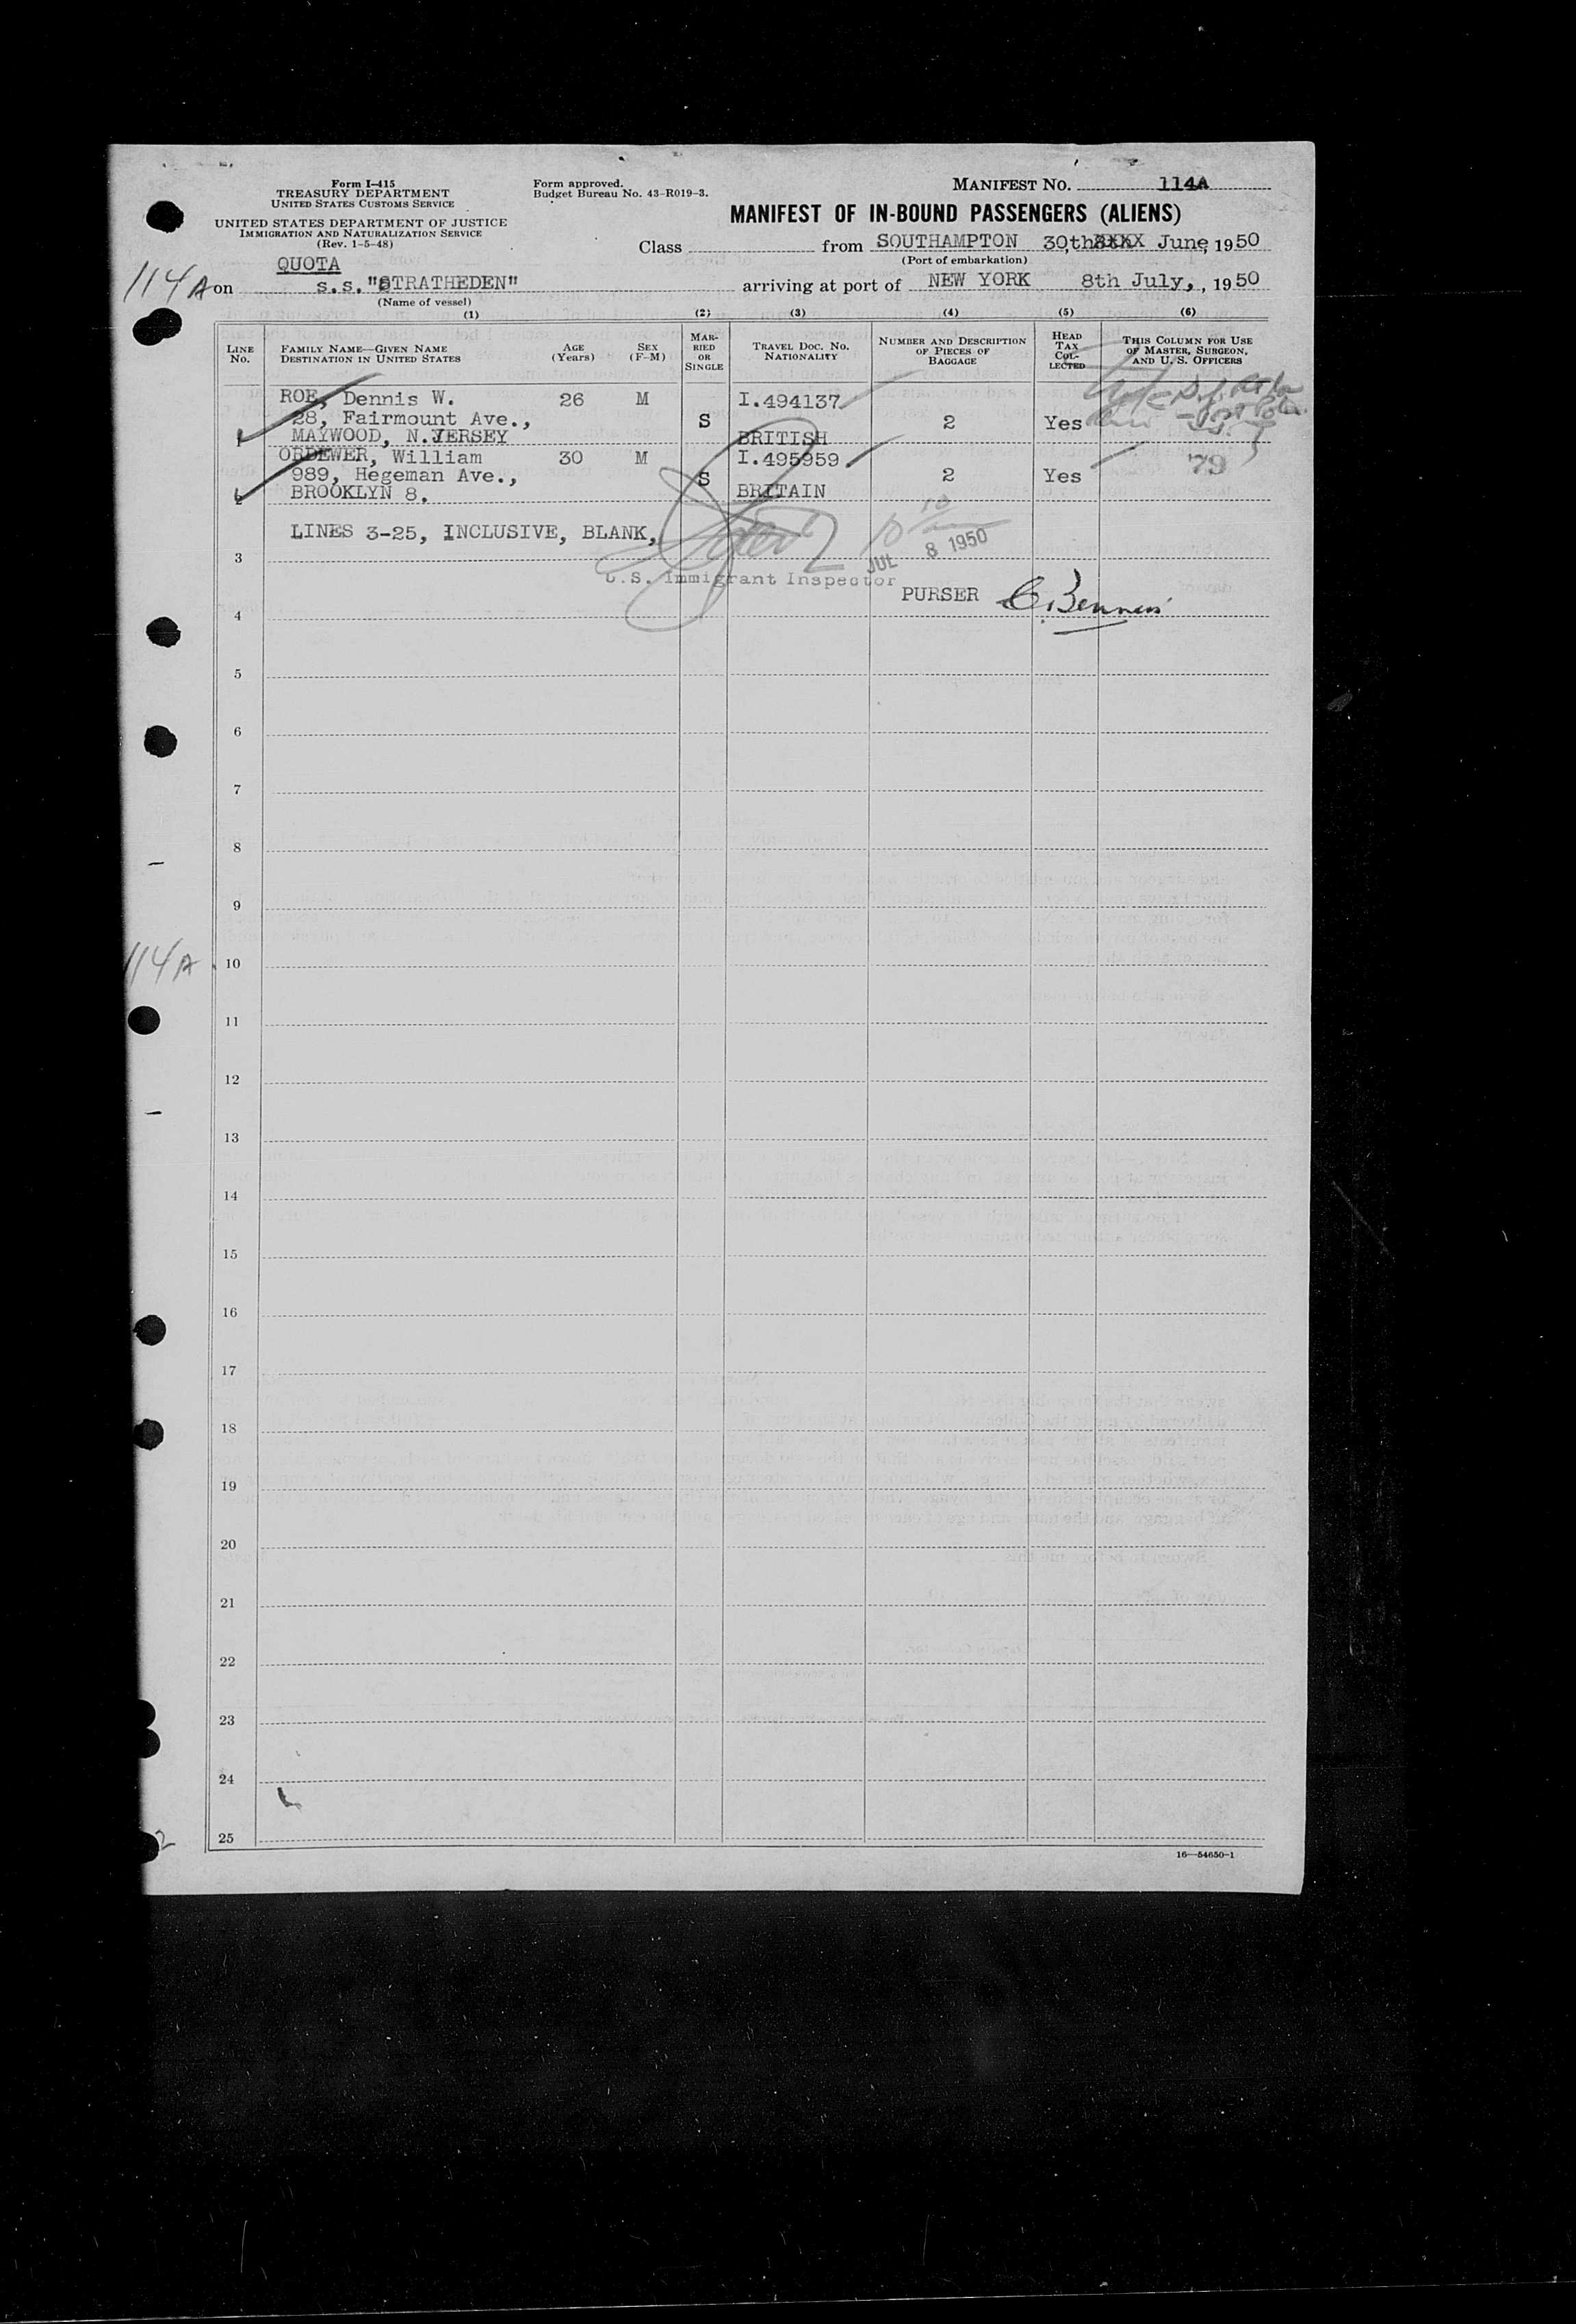 Form I-415
TREASURY DEPARTMENT
UNITED STATES CUSTOMS SERVICE
UNITED STATES DEPARTMENT OF JUSTICE
IMMIGRATION AND NATURALIZATION SERVICE
(Rev. 1-5-48)
Form approved.
Budget Bureau No. 43-R019-3.
MANIFEST NO. 114A
MANIFEST OF IN-BOUND PASSENGERS (ALIENS)
Class from SOUTHAMPTON 30,th June, 1950
(Port of embarkation)
QUOTA
114A on s.s. "STRATHEDEN" arriving at port of NEW YORK 8th July, , 1950
(Name of vessel)
(1) (2) (3) (4) (5) (6)
LINE No. FAMILY NAME—GIVEN NAME DESTINATION IN UNITED STATES AGE (Years) SEX (F-M) MARRIED OR SINGLE TRAVEL DOC. No. NATIONALITY NUMBER AND DESCRIPTION OF PIECES OF BAGGAGE HEAD TAX COLLECTED THIS COLUMN FOR USE OF MASTER, SURGEON, AND U. S. OFFICERS
ROE, Dennis W. 26 M I.494137
28, Fairmount Ave., S 2 Yes
1 MAYWOOD, N.JERSEY BRITISH
ORDEWER, William 30 M I.495959 79
989, Hegeman Ave., S 2 Yes
2 BROOKLYN 8. BRITAIN
LINES 3-25, INCLUSIVE, BLANK,
10 10
JUL 8 1950
3
U.S. Immigrant Inspector
PURSER
4
5
6
7
8
9
114A 10
11
12
13
14
15
16
17
18
19
20
21
22
23
24
25
2
16—54650-1